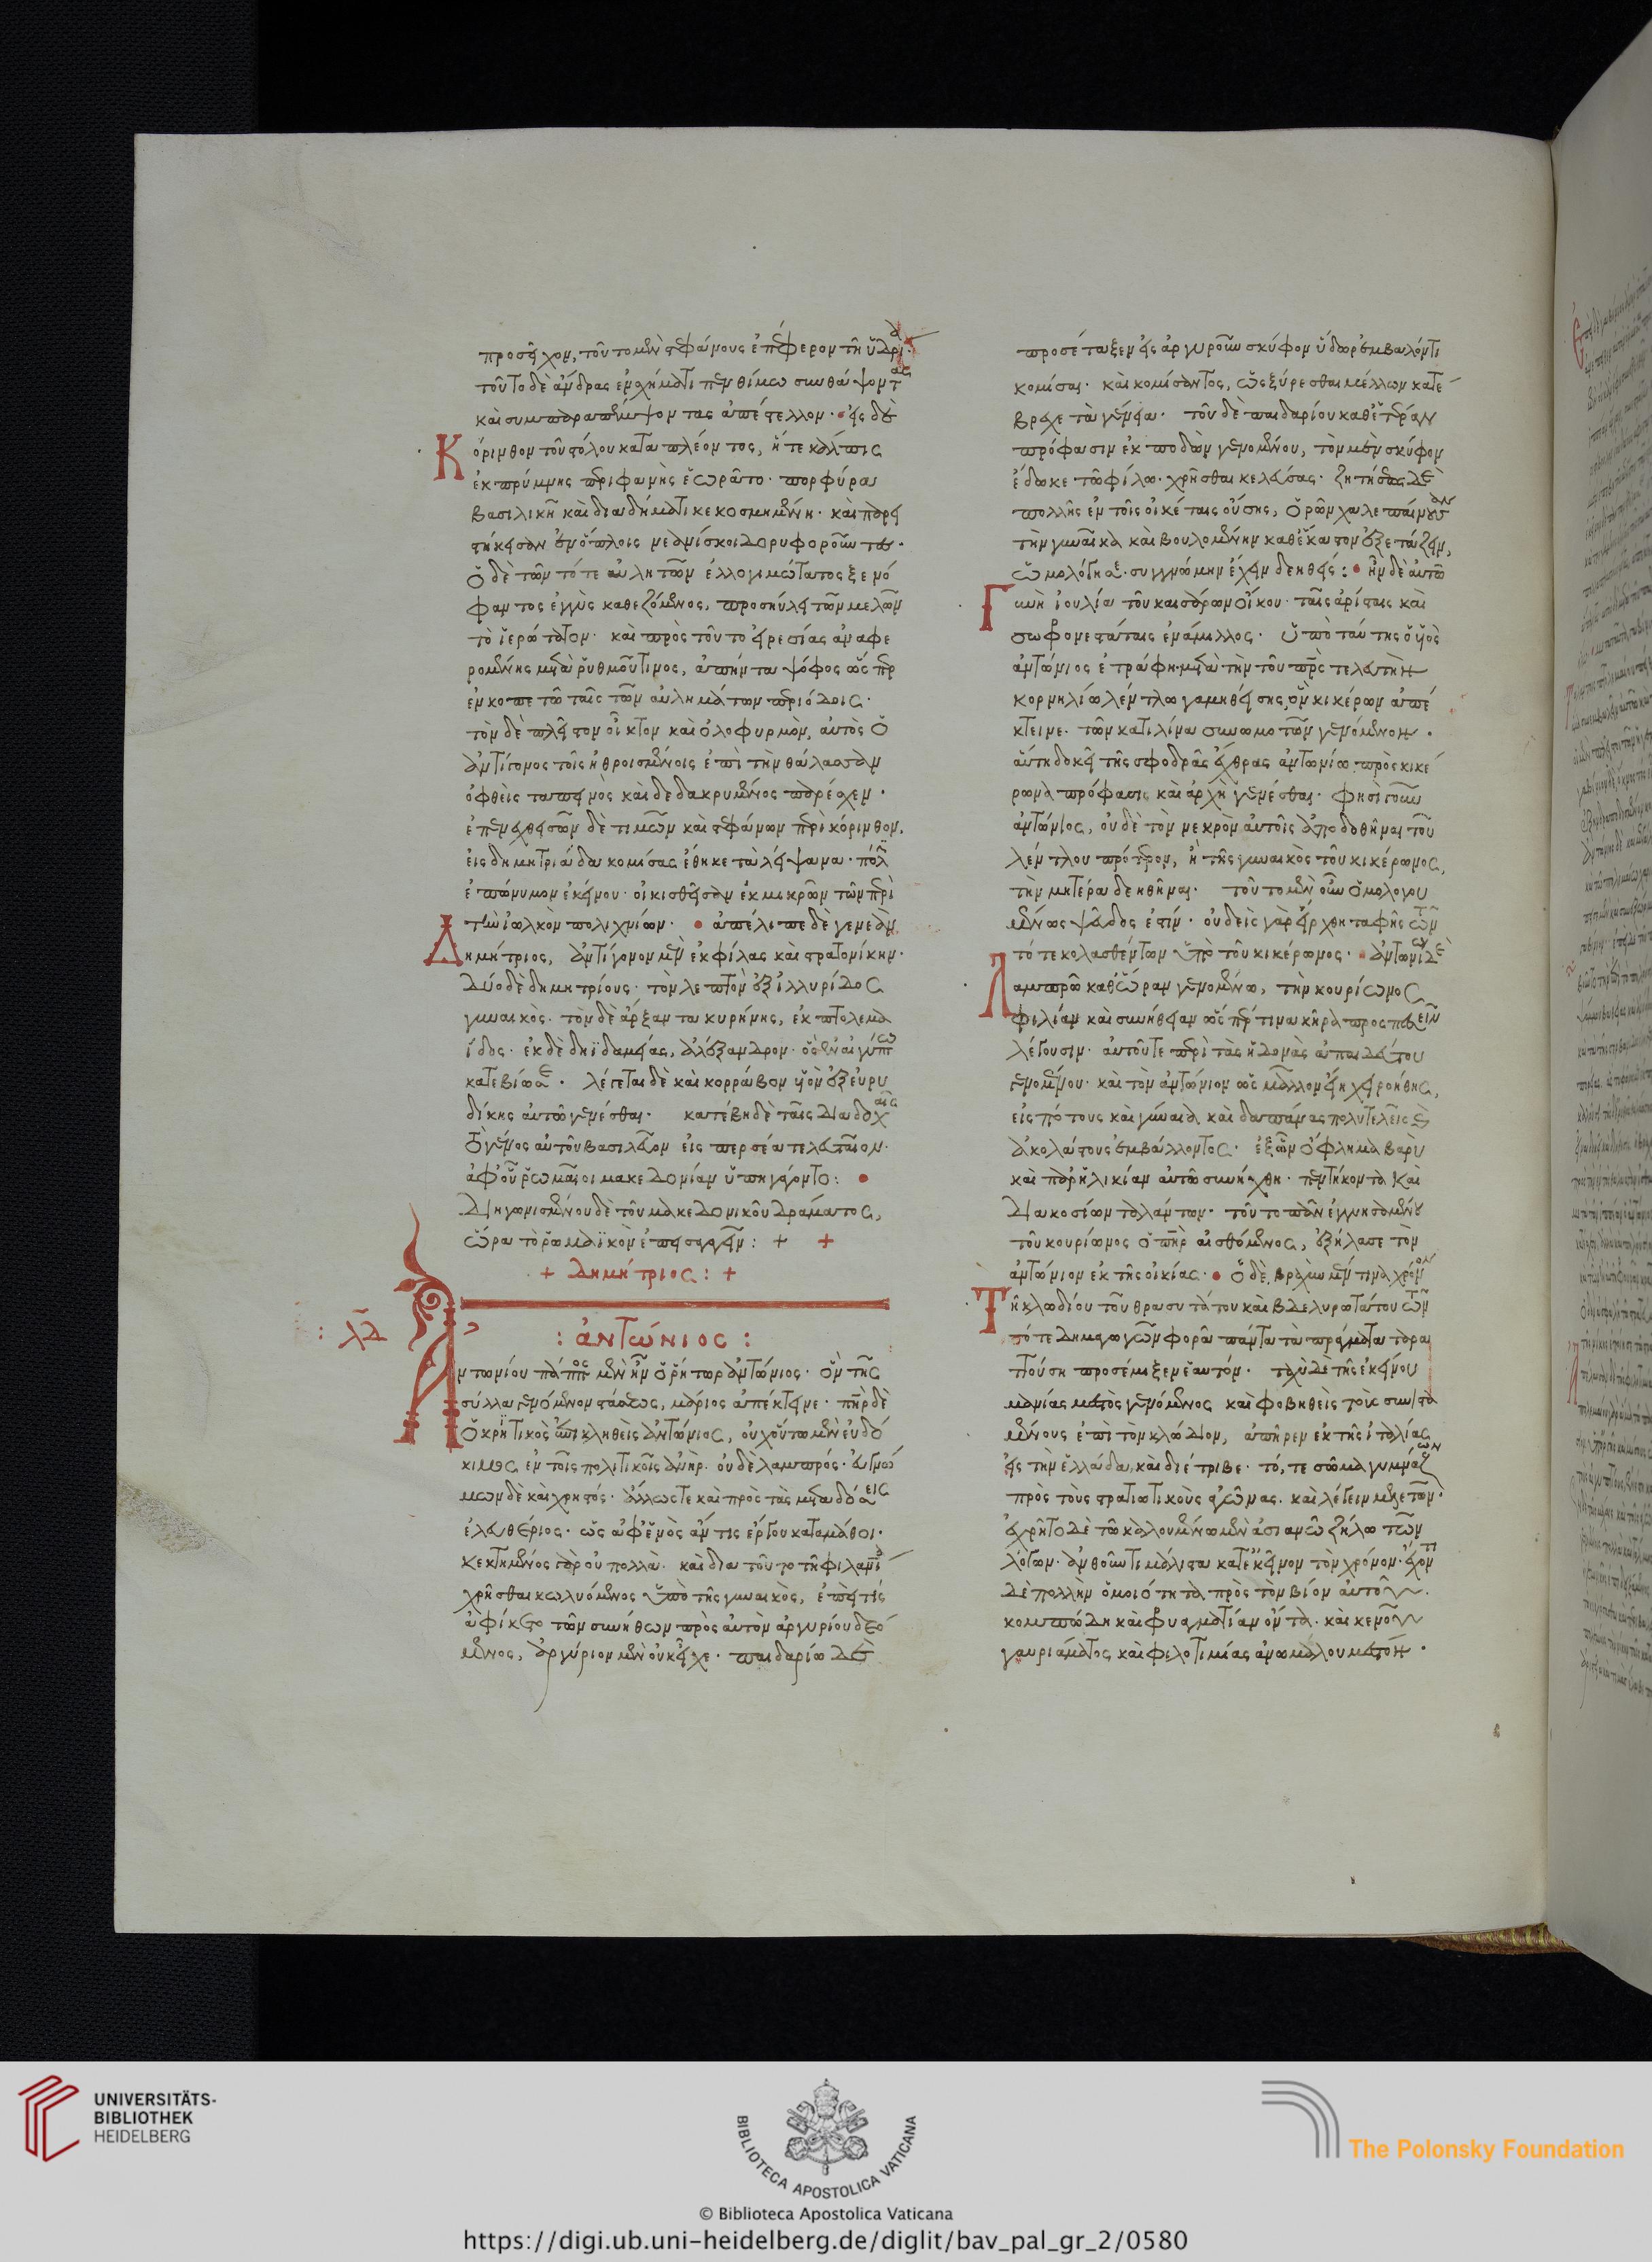 προσεῖχον, τοῦτο μὲν στεφάνους ἐπέφερον τῆ ὑδρία·
τοῦτο δὲ ἄνδρας ἐν σχήματι πενθίμω συνθάψοντας
καὶ συμπαραπέμψοντας ἀπέστελλον· εἰς δὲ
Κόρινθον τοῦ στόλου καταπλέοντος, ἥ τε κάλπις
ἐκ πρύμνης περιφανὴς ἑωρᾶτο· πορφύρα
βασιλικῆ καὶ διαδήματι κεκοσμημένη· καὶ παρει
στήκεσαν ἐν ὅπλοις νεανίσκοι δορυφοροῦντες·
ὁ δὲ τῶν τότε αὐλητῶν ἐλλογιμώτατος ξενό
φαντος ἐγγὺς καθεζόμενος, προσηύλει τῶν μελῶν
τὸ ἱερώτατον· καὶ πρὸς τοῦτο εἰρεσίας ἀναφε
ρομένης μετὰ ῥυθμοῦ τινος, ἀπήντα ψόφος ὥσπερ
ἐν κοπετῶ ταῖς τῶν αὐλημάτων περιόδοις·
τὸν δὲ πλεῖστον οἶκτον καὶ ὀλοφυρμὸν, αὐτὸς ὁ
ἀντίγονος τοῖς ἠθροισμένοις ἐπὶ τὴν θάλασσαν
ὀφθεὶς ταπεινὸς καὶ δεδακρυμένος παρέσχεν·
ἐπενεχθεισῶν δὲ τιμῶν καὶ στεφάνων περὶ κόρινθον,
εἰς δημητριάδα κομίσας ἔθηκε τὰ λείψανα· πόλιν
ἐπώνυμον ἐκείνου· οἰκισθεῖσαν ἐκ μικρῶν τῶν περὶ
τὴν ἰωλκὸν πολιχνίων· ἀπέλιπε δὲ γενεὰν
Δημήτριος, ἀντίγονον μὲν ἐκ φίλας καὶ στρατονίκην·
δύο δὲ δημητρίους· τὸν λεπτὸν ἐξ ἰλλυρίδος
γυναικὸς· τὸν δὲ ἄρξαντα κυρήνης, ἐκ πτολεμα
ΐδος· ἐκ δὲ δηϊδαμείας, ἀλέξανδρον· ὃς ἐν αἰγύπτω
κατεβίωσε· λέγεται δὲ καὶ κορράβον υἱὸν ἐξ εὐρυ
δίκης αὐτῶ γενέσθαι· κατέβη δὲ ταῖς διαδοχαῖς
τὸ γένος αὐτοῦ βασιλεῦον εἰς περσέα τελευταῖον·
ἀφ' οὗ ῥωμαῖοι μακεδονίαν ὑπηγάγοντο:
Διηγωνισμένου δὲ τοῦ μακεδονικοῦ δράματος,
ὥρα τὸ ῥωμαϊκὸν ἐπεισαγαγεῖν: + +
+ δημήτριος: +
λδ
: ἀντώνιος :
Ἀντωνίου πάππος μὲν ἦν ὁ ῥήτωρ ἀντώνιος· ὃν τῆς
σύλλα γενόμενον στάσεως, μάριος ἀπέκτεινε· πατὴρ δὲ
ὁ κρητικὸς ἐπικληθεὶς ἀντώνιος, οὐχ οὕτω μὲν εὐδό
κιμος ἐν τοῖς πολιτικοῖς ἀνὴρ· οὐδὲ λαμπρός· εὐγνώ
μων δὲ καὶ χρηστός· ἄλλως τε καὶ πρὸς τὰς μεταδόσεις
ἐλευθέριος· ὡς ἀφ' ἑνὸς ἄν τις ἔργου καταμάθοι·
κεκτημένος γὰρ οὐ πολλὰ· καὶ διὰ τοῦτο τῆ φιλανθρωπία
χρῆσθαι κωλυόμενος ὑπὸ τῆς γυναικὸς, ἐπεί τις
ἀφίκετο τῶν συνήθων πρὸς αὐτὸν ἀργυρίου δεό
μενος, ἀργύριον μὲν οὐκ εἶχε· παιδαρίω δὲ
προσέταξεν εἰς ἀργυροῦν σκύφον ὕδωρ ἐμβαλόντι
κομίσαι· καὶ κομίσαντος, ὡς ξύρεσθαι μέλλων κατέ
βρεχε τὰ γένεια· τοῦ δὲ παιδαρίου καθ' ἑτέραν
πρόφασιν ἐκ ποδὼν γενομένου, τὸν μὲν σκύφον
ἔδωκε τῶ φίλω· χρῆσθαι κελεύσας· ζητήσεως δὲ
πολλῆς ἐν τοῖς οἰκέταις οὔσης, ὁρῶν χαλεπαίνουσαν
τὴν γυναῖκα καὶ βουλομένην καθ' ἕκαστον ἐξετάζειν,
ὡμολόγησε· συγγνώμην ἔχειν δεηθείς: ἦν δὲ αὐτῶ
Γυνὴ ἰουλία τοῦ καισάρων οἴκου· ταῖς ἀρίσταις καὶ
σωφρονεστάταις ἐνάμιλλος· ὑπὸ ταύτης ὁ υἱὸς
ἀντώνιος ἐτράφη· μετὰ τὴν τοῦ πατρὸς τελευτὴν
κορνηλίω λέντλω γαμηθείσης, ὃν κικέρων ἀπέ
κτεινε· τῶν κατιλίνα συνωμοτῶν γενόμενον·
αὕτη δοκεῖ τῆς σφοδρᾶς ἔχθρας ἀντωνίω πρὸς κικέ
ρωνα πρόφασις καὶ ἀρχὴ γενέσθαι· φησὶ γοῦν
ἀντώνιος, οὐδὲ τὸν νεκρὸν αὐτοῖς ἀποδοθῆναι τοῦ
λέντλου πρότερον, ἢ τῆς γυναικὸς τοῦ κικέρωνος,
τὴν μητέρα δεηθῆναι· τοῦτο μὲν οὖν ὁμολογου
μένως ψεῦδος ἐστίν· οὐδεὶς γὰρ εἴρχθη ταφῆς τῶν
τότε κολασθέντων ὑπὸ τοῦ κικέρωνος· ἀντωνίω δὲ
Λαμπρῶ καθ' ὥραν γενομένω, τὴν κουρίωνος
φιλίαν καὶ συνήθειαν ὥσπερ τινα κῆρα προσπεσεῖν
λέγουσιν· αὐτοῦ τε περὶ τὰς ἡδονὰς ἀπαιδεύτου
γενομένου· καὶ τὸν ἀντώνιον ὡς μᾶλλον εἴη χειροήθης,
εἰς πότους καὶ γύναια καὶ δαπάνας πολυτελεῖς καὶ
ἀκολάστους ἐμβάλλοντος· ἐξ ὧν ὄφλημα βαρὺ
καὶ παρ' ἡλικίαν αὐτῶ συνήχθη· πεντήκοντα καὶ
διακοσίων ταλάντων· τοῦτο πᾶν ἐγγυησαμένου
τοῦ κουρίωνος ὁ πατὴρ αἰσθόμενος, ἐξήλασε τὸν
ἀντώνιον ἐκ τῆς οἰκίας· ὁ δὲ, βραχὺν μέν τινα χρόνον
Τῆ κλωδίου τοῦ θρασυτάτου καὶ βδελυρωτάτου τῶν
τότε δημαγωγῶν φορᾶ πάντα τὰ πράγματα ταρα
ττούση προσέμιξεν ἑαυτόν· ταχὺ δὲ τῆς ἐκείνου
μανίας μεστὸς γενόμενος καὶ φοβηθεὶς τοὺς συνιστα
μένους ἐπὶ τὸν κλώδιον, ἀπῆρεν ἐκ τῆς ἰταλίας
εἰς τὴν ἑλλάδα, καὶ διέτριβε· τό, τε σῶμα γυμνάζων
πρὸς τοὺς στρατιωτικοὺς ἀγῶνας· καὶ λέγειν μελετῶν·
ἐχρῆτο δὲ τῶ καλουμένω μὲν ἀσιανῶ ζήλω τῶν
λόγων· ἀνθοῦντι μάλιστα κατ' ἐκεῖνον τὸν χρόνον· ἔχοντι
δὲ πολλὴν ὁμοιότητα πρὸς τὸν βίον αὐτοῦ·
κομπώδη καὶ φρυαγματίαν ὄντα· καὶ κενοῦ
γαυριάματος καὶ φιλοτιμίας ἀνωμάλου μεστόν·
UNIVERSITÄTS-
BIBLIOTHEK
HEIDELBERG
BIBLIOTECA APOSTOLICA VATICANA
The Polonsky Foundation
© Biblioteca Apostolica Vaticana
https://digi.ub.uni-heidelberg.de/diglit/bav_pal_gr_2/0580